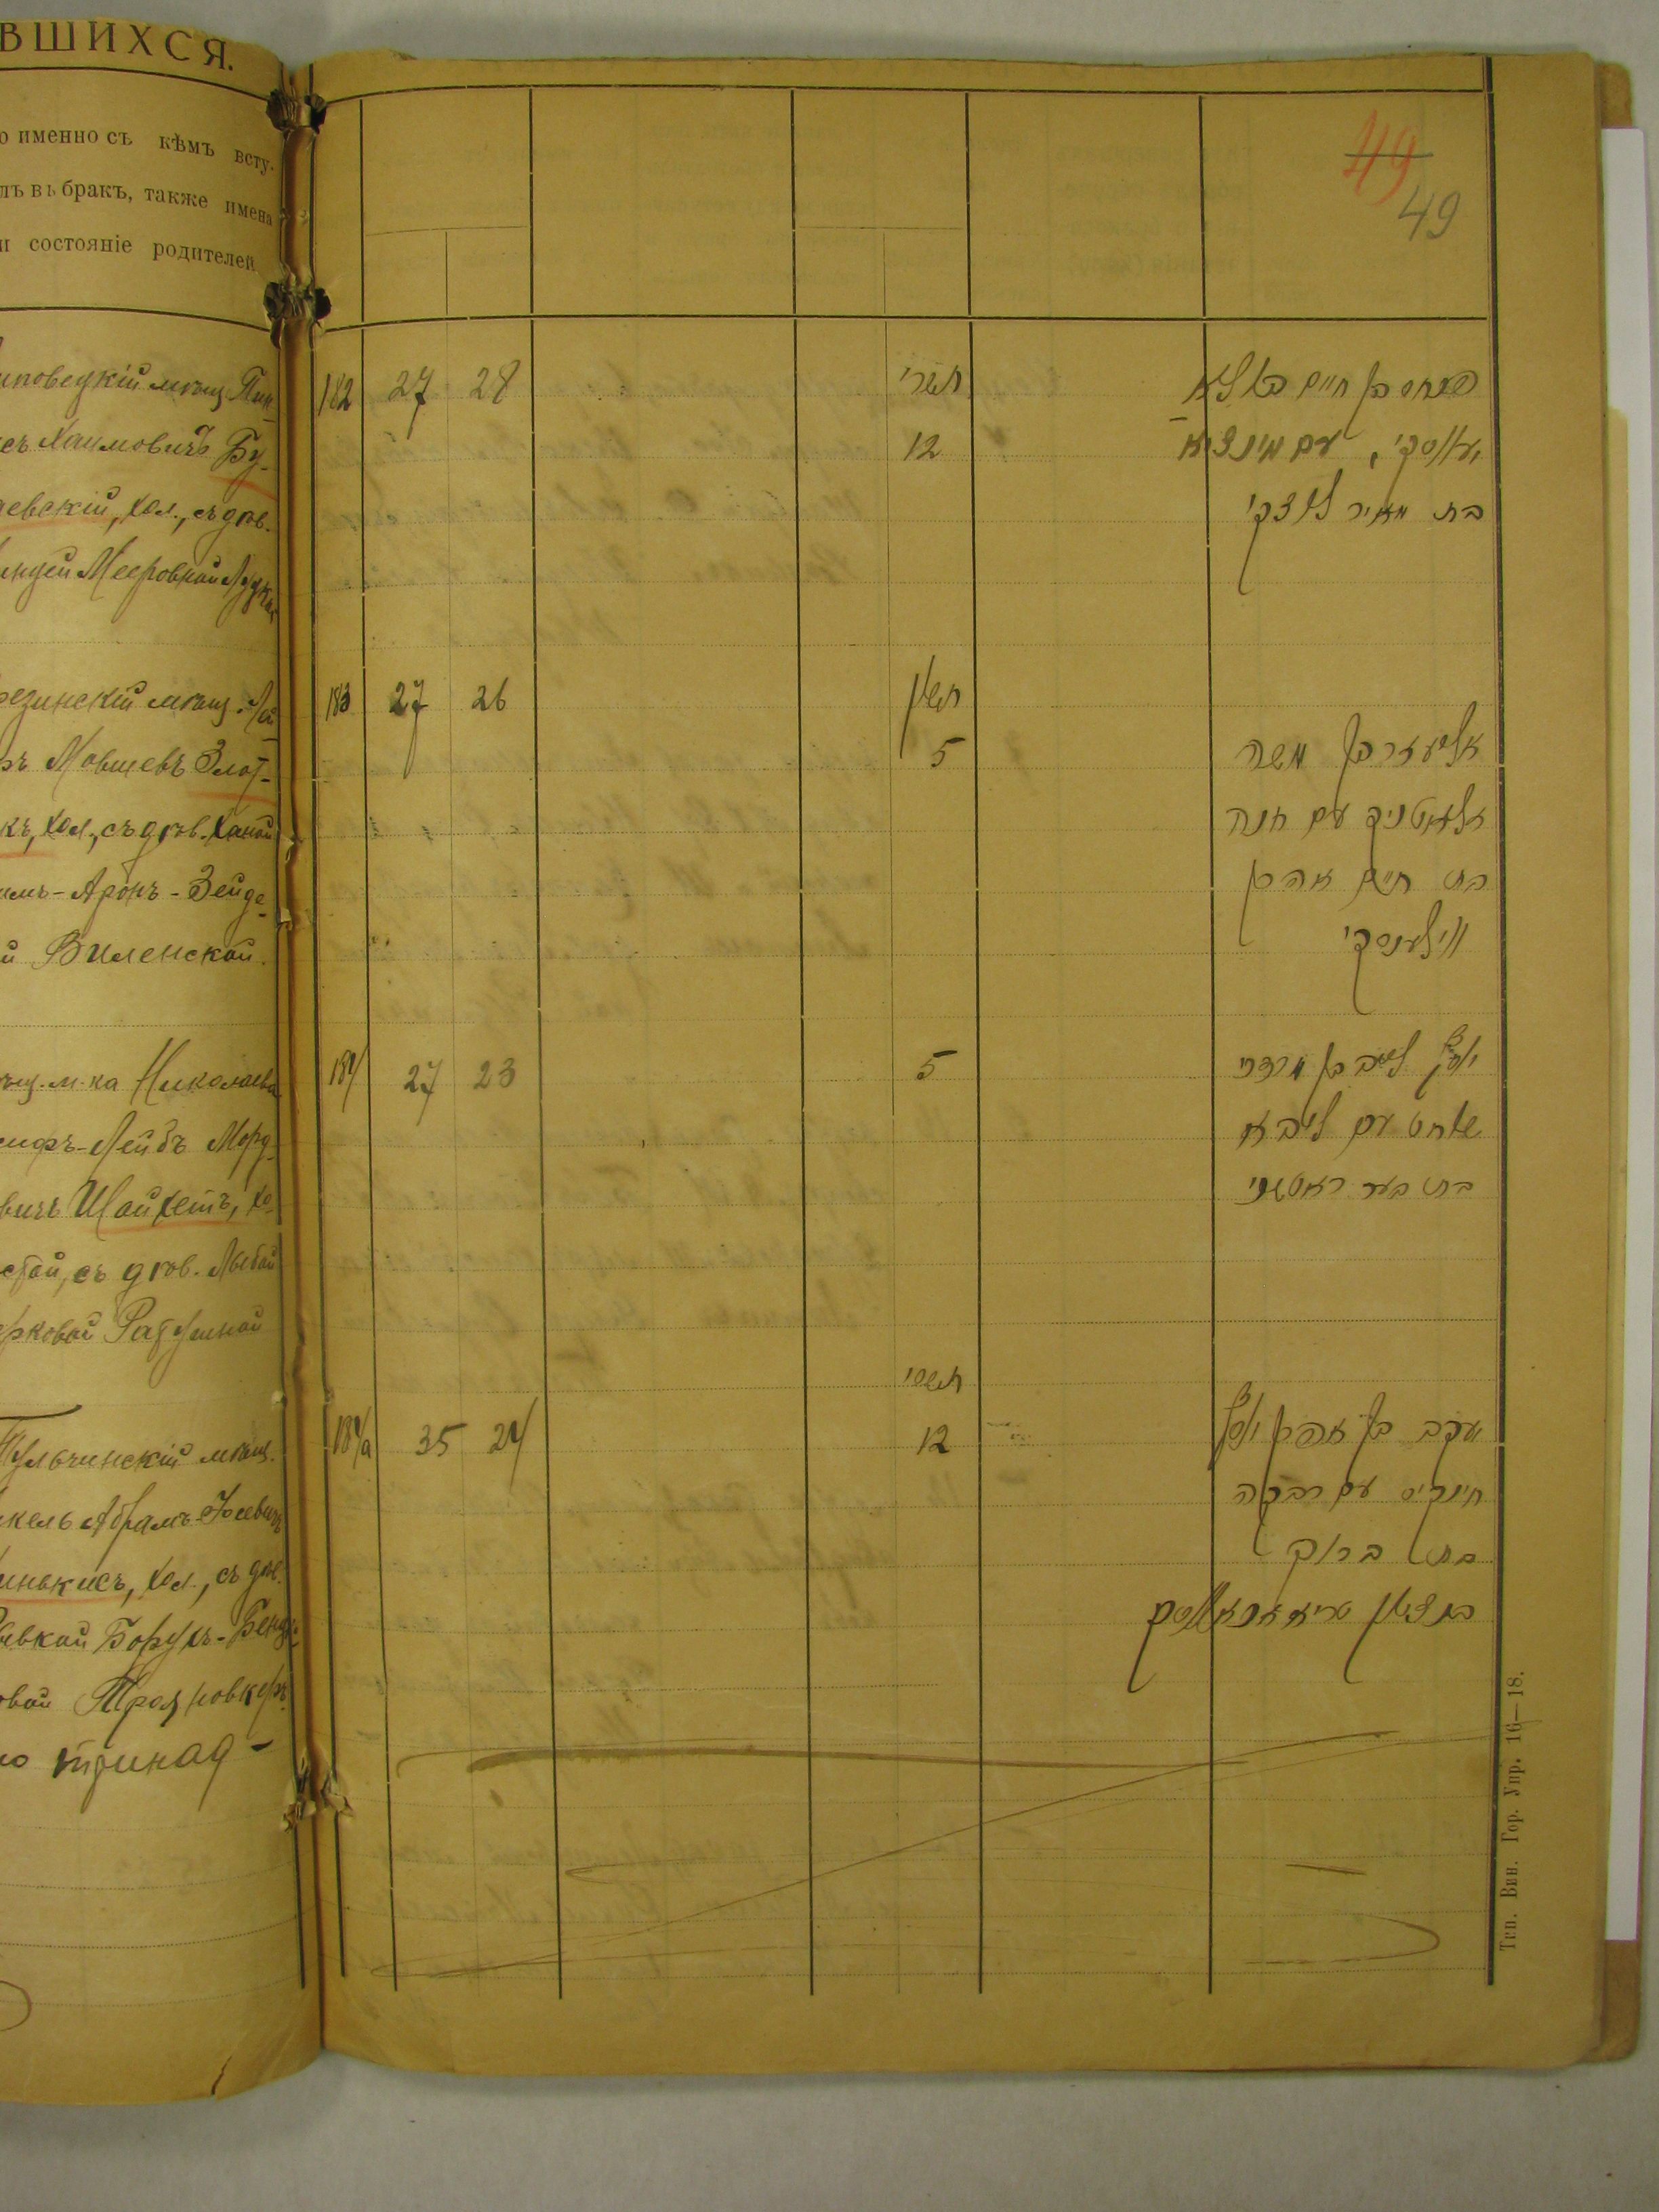 ВШИХСЯ.
о именно съ кѣмъ всту-
лъ въ бракъ, также имена
и состояніе родителей
иповецкій мѣщ. Пин-
съ Хаимовичъ Бу-
аевскій, хол., съ дѣв.
Мееровной
резинскій мѣщ.
ръ Мовшевъ Злот-
къ, хол., съ дѣв. Ханой
имъ-Аронъ-Зейде-
й Виленской.
м-ка Николаева
сифъ-Лейбъ Морд-
вичъ Шойхетъ, хо-
стой, съ дѣв. Либой
ерковой
Тульчинскій мѣщ.
нкель Абрамъ-Іосевичъ
инькисъ, хол., съ дѣв.
ивкой Борухъ-
овой
но тринад-
49
49
182 27 28 תשרי
12
פנחס בן חיים
עם מינציא
בת מאיר לוצקי
183 27 26 חשון
5
אליעזר בן משה
זלאטניק עם חנה
בת חיים אהרן
ווילענסקי
184 27 23 5
יוסף ליב בן מרדכי
שוחט עם ליבא
בת בער
תשרי
184/а 35 24 12
יעקב בן אברהם יוסף
חינקיס עם רבקה
בת ברוך
בן ציון
Тип. Вин. Гор. Упр. 16—18.